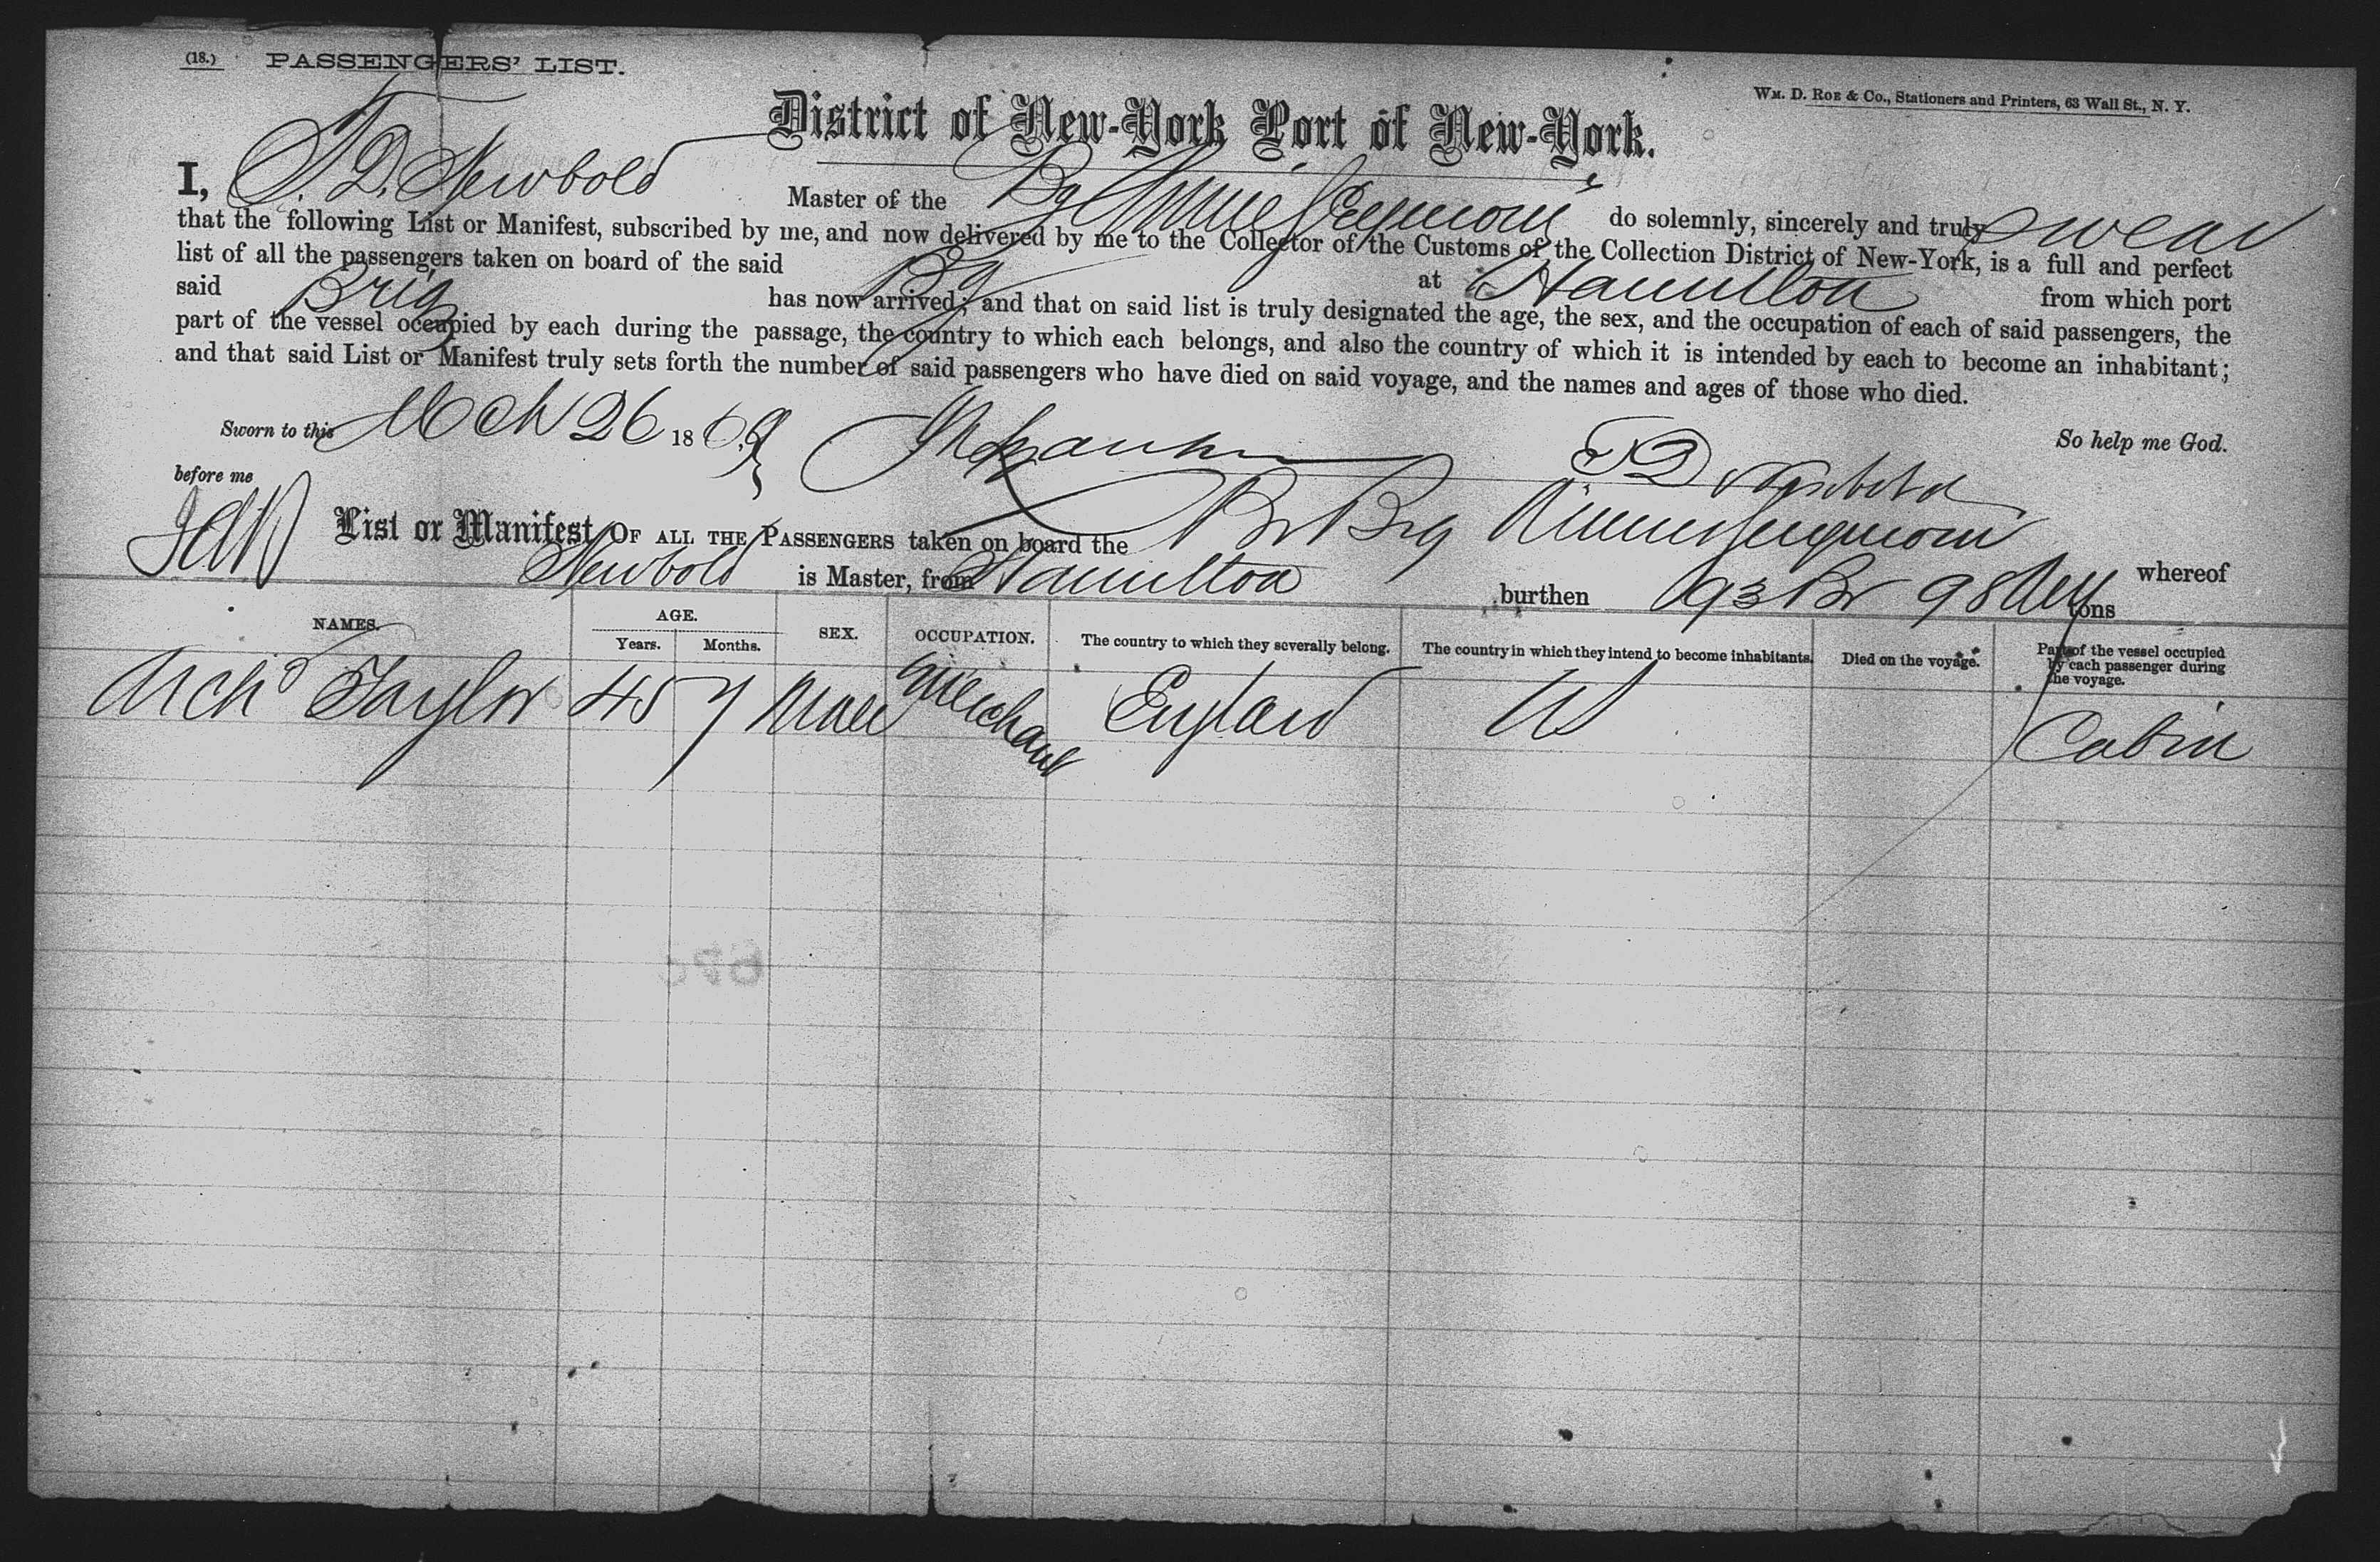 (18.) PASSENGERS' LIST.
WM. D. ROE & CO., Stationers and Printers, 63 Wall St., N. Y.
District of New-York Port of New-York.
I, T. D. Newbold Master of the Bg do solemnly, sincerely and truly swear
that the following List or Manifest, subscribed by me, and now delivered by me to the Collector of the Customs of the Collection District of New-York, is a full and perfect
list of all the passengers taken on board of the said Bg at Hamilton from which port
said Brig has now arrived; and that on said list is truly designated the age, the sex, and the occupation of each of said passengers, the
part of the vessel occupied by each during the passage, the country to which each belongs, and also the country of which it is intended by each to become an inhabitant;
and that said List or Manifest truly sets forth the number of said passengers who have died on said voyage, and the names and ages of those who died.
Sworn to this Mch 26 1869 So help me God.
before me T D Newbold
List or Manifest OF ALL THE PASSENGERS taken on board the Br Brg whereof
Newbold is Master, from Hamilton burthen 193 Br 98 tons
NAMES. AGE. Years. Months. SEX. OCCUPATION. The country to which they severally belong. The country in which they intend to become inhabitants. Died on the voyage. Part of the vessel occupied by each passenger during the voyage.
Archd Taylor 45 7 Male Merchant England US Cabin